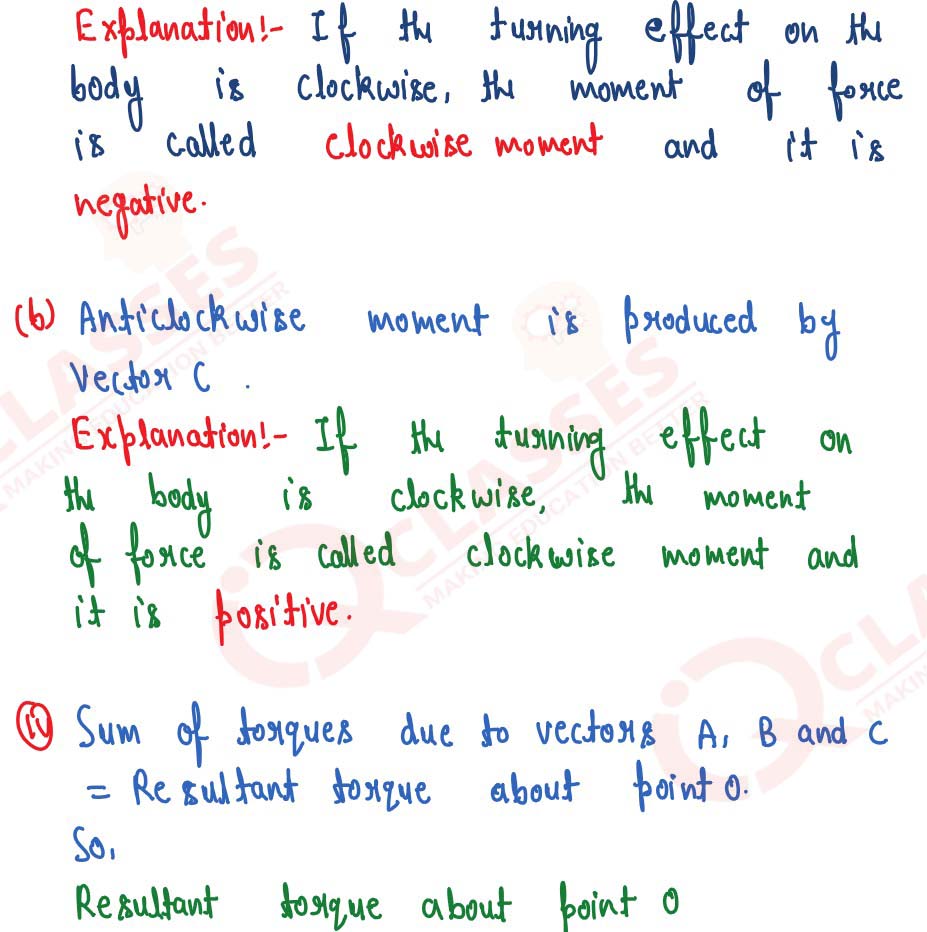 Explanation:- If the turning effect on the
body is clockwise, the moment of force
is called clockwise moment and it is
negative.
(b) Anticlockwise moment is produced by
vector C.
Explanation:- If the turning effect on
the body is clockwise, the moment
of force is called clockwise moment and
it is positive.
(iv) Sum of torques due to vectors A, B and C
= Resultant torque about point O.
So,
Resultant torque about point O
CLASSES
MAKING EDUCATION BETTER
IQ CLASSES
MAKING EDUCATION BETTER
IQ CLA
MAKIN